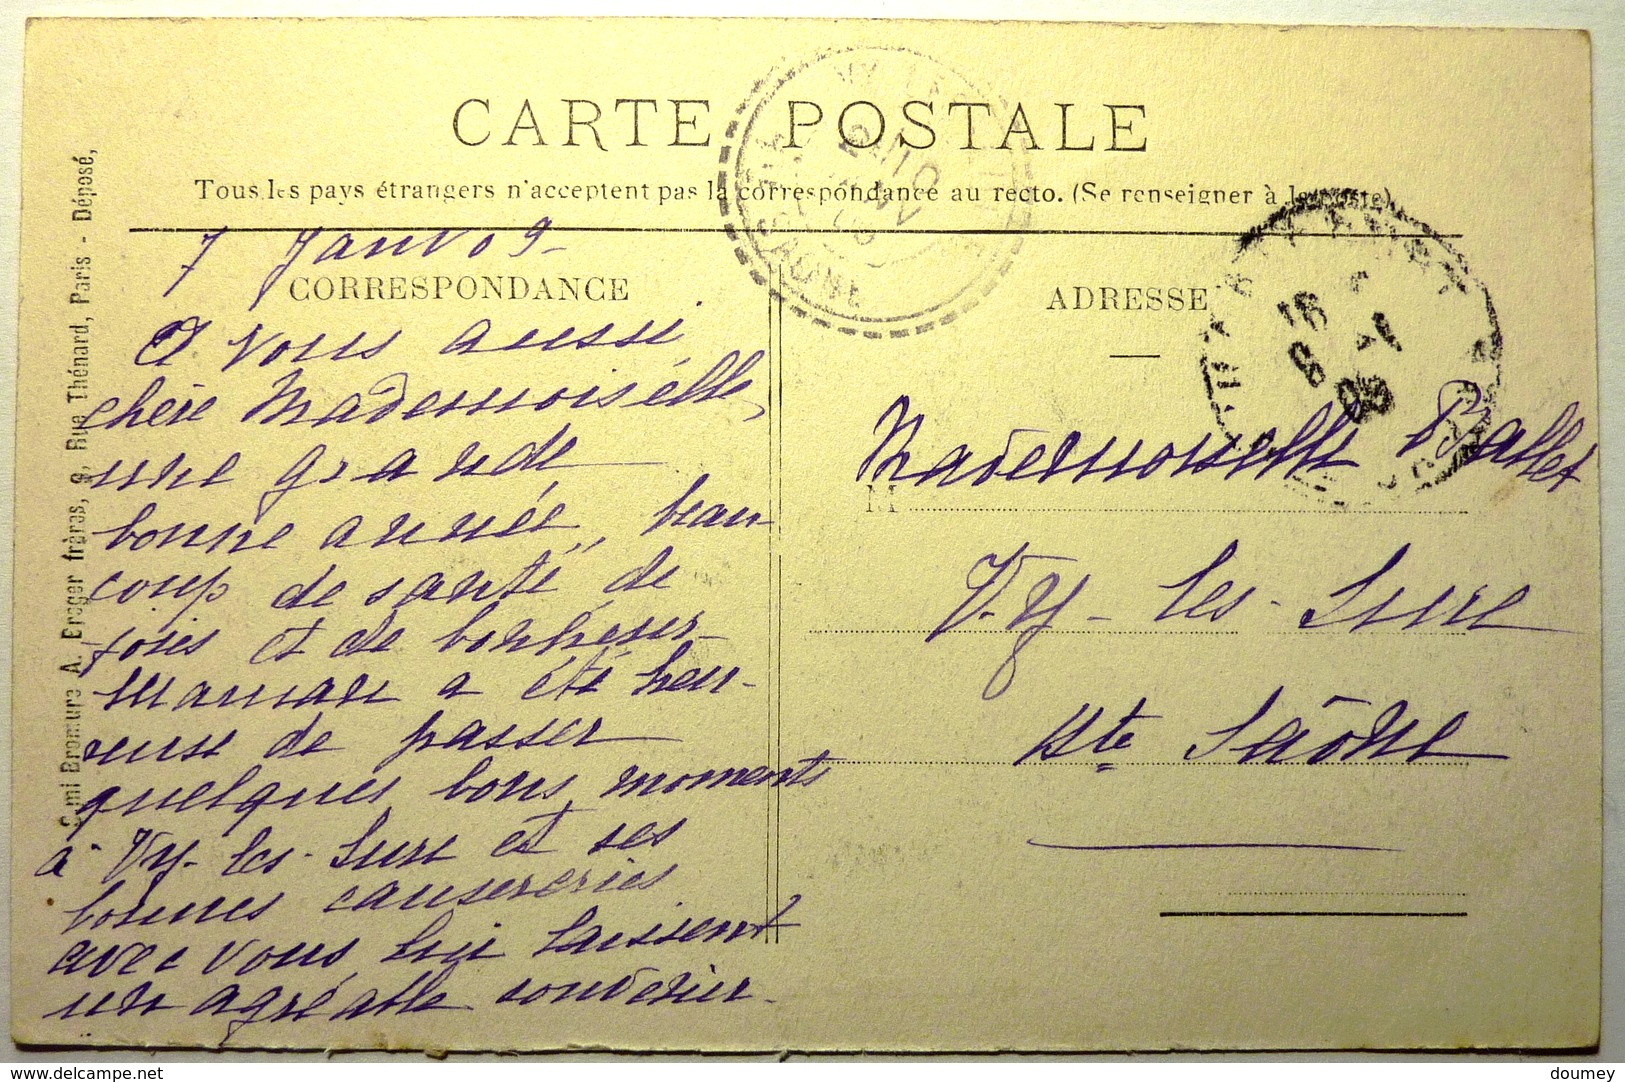 CARTE POSTALE
Tous les pays étrangers n'acceptent pas la correspondance au recto. (Se renseigner à la poste)
7 Janv 09
CORRESPONDANCE
A vous aussi
chère Mademoiselle,
une grande
bonne année, beau-
coup de santé de
joies et de bonheur
Maman a été heu-
reuse de passer
quelques bons moments
à Vy-les-Lure et ses
bonnes causereries
avec vous lui laissent
un agréable souvenir.
ADRESSE
Mademoiselle Ballet
M
Vy-les-Lure
Hte Saône
Semi Bromure A. Breger frères, 9, Rue Thénard, Paris - Déposé,
16
8 -1
09
SAONE
www.delcampe.net
doumey